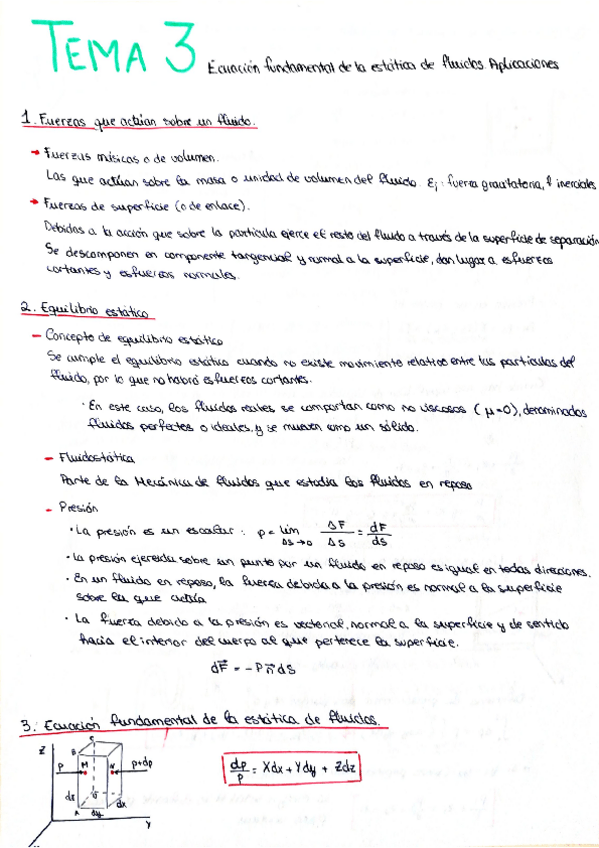 TEMA 3 Ecuación fundamental de la estática de fluidos. Aplicaciones
1. Fuerzas que actúan sobre un fluido.
→ Fuerzas másicas o de volumen.
Las que actúan sobre la masa o unidad de volumen del fluido. Ej: fuerza gravitatoria, f inerciales
→ Fuerzas de superficie (o de enlace).
Debidas a la acción que sobre la partícula ejerce el resto del fluido a través de la superficie de separación
Se descomponen en componente tangencial y normal a la superficie, dan lugar a esfuerzos
cortantes y esfuerzos normales.
2. Equilibrio estático
- Concepto de equilibrio estático
Se cumple el equilibrio estático cuando no existe movimiento relativo entre las partículas del
fluido, por lo que no habrá esfuerzos cortantes.
· En este caso, los fluidos reales se comportan como no viscosos (μ=0), denominados
fluidos perfectos o ideales, y se mueven como un sólido.
- Fluidostática
Parte de la Mecánica de fluidos que estudia los fluidos en reposo
- Presión
· La presión es un escalar: p = lim ΔS→0 ΔF/ΔS = dF/dS
· La presión ejercida sobre un punto por un fluido en reposo es igual en todas direcciones.
· En un fluido en reposo, la fuerza debida a la presión es normal a la superficie
sobre la que actúa
· La fuerza debido a la presión es vectorial, normal a la superficie y de sentido
hacia el interior del cuerpo al que pertenece la superficie.
dF⃗ = -P n⃗ dS
3. Ecuación fundamental de la estática de fluidos.
Z C B P M N p+dp dz G A dy dx Y
dp/ρ = Xdx + Ydy + Zdz